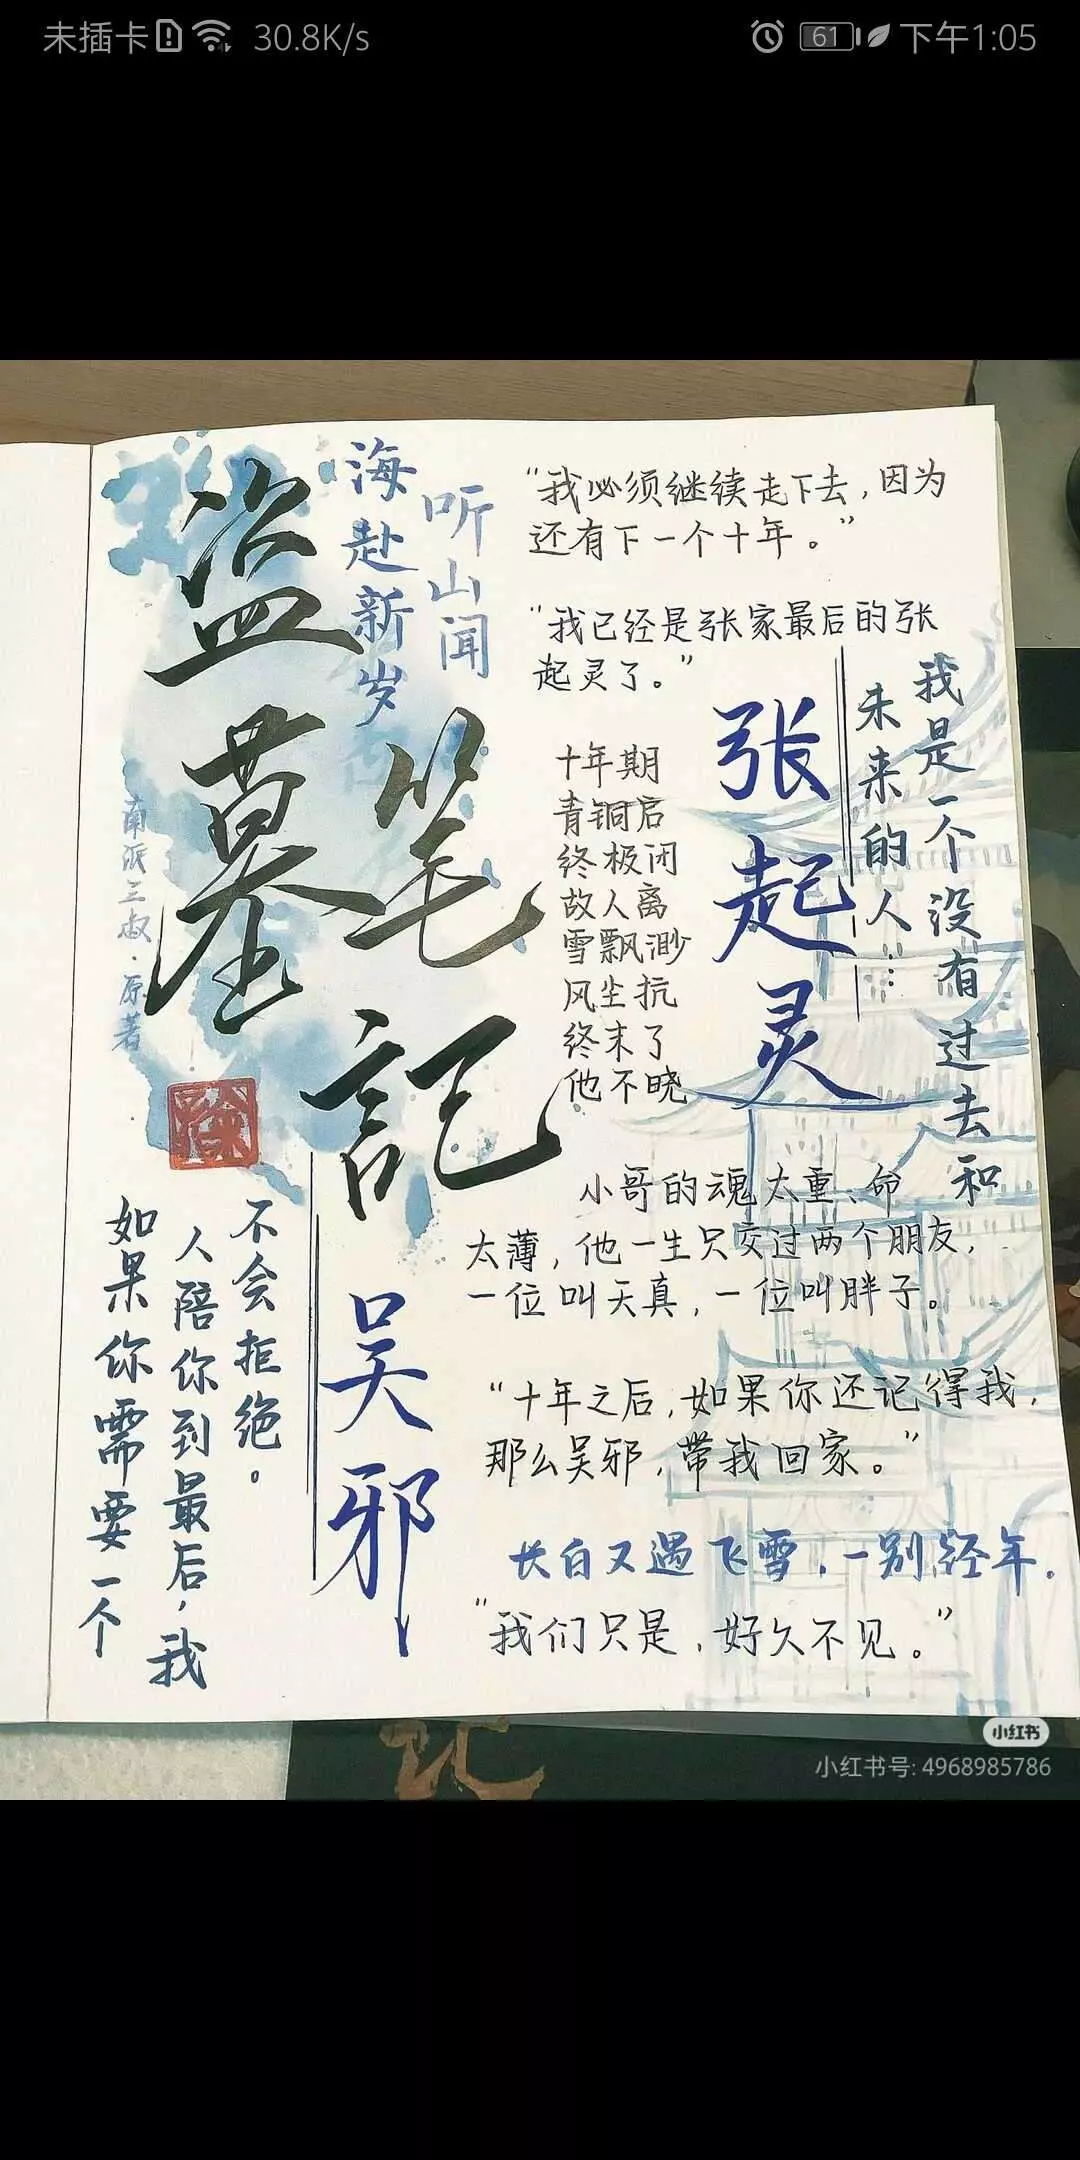 未插卡 30.8K/s 61 下午1:05
盗墓
笔記
听山闻
海赴新岁
南派三叔·原著
“我必须继续走下去，因为
还有下一个十年。”
“我已经是张家最后的张
起灵了。”
张起灵
我是一个没有过去和
未来的人…
十年期
青铜启
终极闭
故人离
雪飘渺
风尘抗
终末了
他不晓
小哥的魂太重、命
太薄，他一生只交过两个朋友，
一位叫天真，一位叫胖子。
吴邪
如果你需要一个
人陪你到最后，我
不会拒绝。
“十年之后，如果你还记得我，
那么吴邪，带我回家。”
长白又遇飞雪，一别经年.
“我们只是，好久不见。”
记
小红书
小红书号: 4968985786